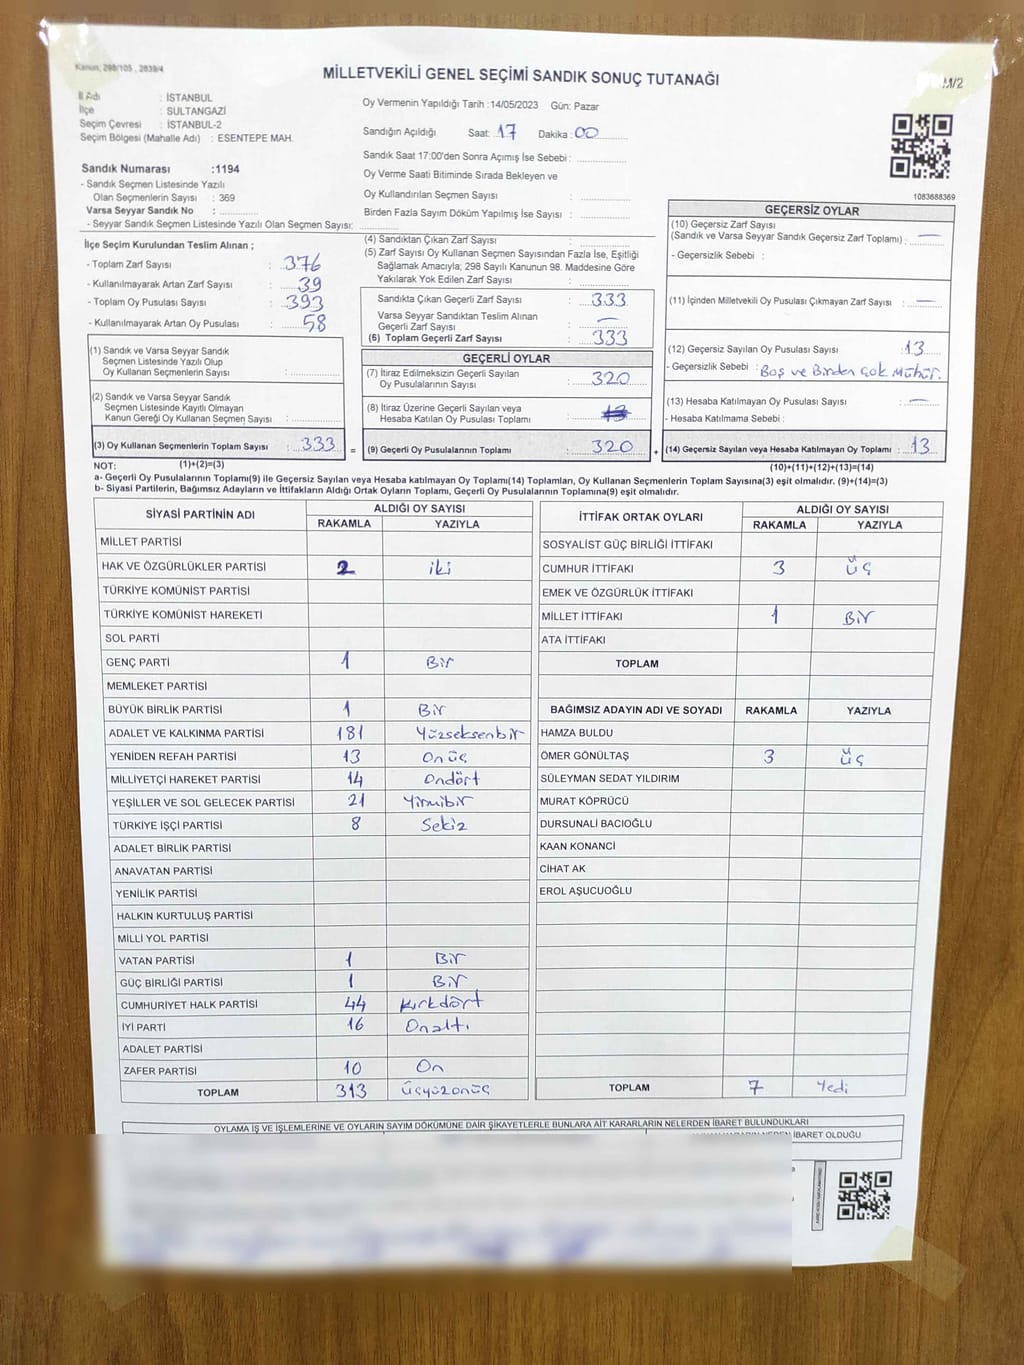 Kanun: 298/105 , 2839/4
MİLLETVEKİLİ GENEL SEÇİMİ SANDIK SONUÇ TUTANAĞI
M/2
İl Adı : İSTANBUL
İlçe : SULTANGAZİ
Seçim Çevresi : İSTANBUL-2
Seçim Bölgesi (Mahalle Adı) : ESENTEPE MAH.
Oy Vermenin Yapıldığı Tarih :14/05/2023 Gün: Pazar
Sandığın Açıldığı Saat: 17 Dakika: 00
Sandık Saat 17:00'den Sonra Açımış İse Sebebi :
Oy Verme Saati Bitiminde Sırada Bekleyen ve
Oy Kullandırılan Seçmen Sayısı :
Birden Fazla Sayım Döküm Yapılmış İse Sayısı :
1083688369
Sandık Numarası :1194
- Sandık Seçmen Listesinde Yazılı
Olan Seçmenlerin Sayısı : 369
Varsa Seyyar Sandık No :
- Seyyar Sandık Seçmen Listesinde Yazılı Olan Seçmen Sayısı:
İlçe Seçim Kurulundan Teslim Alınan ;
- Toplam Zarf Sayısı : 376
- Kullanılmayarak Artan Zarf Sayısı : 39
- Toplam Oy Pusulası Sayısı : 393
- Kullanılmayarak Artan Oy Pusulası : 58
(1) Sandık ve Varsa Seyyar Sandık
Seçmen Listesinde Yazılı Olup
Oy Kullanan Seçmenlerin Sayısı :
(2) Sandık ve Varsa Seyyar Sandık
Seçmen Listesinde Kayıtlı Olmayan
Kanun Gereği Oy Kullanan Seçmen Sayısı :
(3) Oy Kullanan Seçmenlerin Toplam Sayısı : 333 =
(4) Sandıktan Çıkan Zarf Sayısı :
(5) Zarf Sayısı Oy Kullanan Seçmen Sayısından Fazla İse, Eşitliği
Sağlamak Amacıyla; 298 Sayılı Kanunun 98. Maddesine Göre
Yakılarak Yok Edilen Zarf Sayısı :
Sandıkta Çıkan Geçerli Zarf Sayısı : 333
Varsa Seyyar Sandıktan Teslim Alınan
Geçerli Zarf Sayısı : —
(6) Toplam Geçerli Zarf Sayısı : 333
GEÇERLİ OYLAR
(7) İtiraz Edilmeksizin Geçerli Sayılan
Oy Pusulalarının Sayısı : 320
(8) İtiraz Üzerine Geçerli Sayılan veya
Hesaba Katılan Oy Pusulası Toplamı :
(9) Geçerli Oy Pusulalarının Toplamı : 320 +
GEÇERSİZ OYLAR
(10) Geçersiz Zarf Sayısı
(Sandık ve Varsa Seyyar Sandık Geçersiz Zarf Toplamı) : —
- Geçersizlik Sebebi :
(11) İçinden Milletvekili Oy Pusulası Çıkmayan Zarf Sayısı : —
(12) Geçersiz Sayılan Oy Pusulası Sayısı : 13
- Geçersizlik Sebebi : Boş ve Birden Çok Mühür.
(13) Hesaba Katılmayan Oy Pusulası Sayısı : —
- Hesaba Katılmama Sebebi :
(14) Geçersiz Sayılan veya Hesaba Katılmayan Oy Toplamı : 13
NOT: (1)+(2)=(3)
(10)+(11)+(12)+(13)=(14)
a- Geçerli Oy Pusulalarının Toplamı(9) ile Geçersiz Sayılan veya Hesaba katılmayan Oy Toplamı(14) Toplamları, Oy Kullanan Seçmenlerin Toplam Sayısına(3) eşit olmalıdır. (9)+(14)=(3)
b- Siyasi Partilerin, Bağımsız Adayların ve İttifakların Aldığı Ortak Oyların Toplamı, Geçerli Oy Pusulalarının Toplamına(9) eşit olmalıdır.
SİYASİ PARTİNİN ADI
ALDIĞI OY SAYISI
RAKAMLA YAZIYLA
MİLLET PARTİSİ
HAK VE ÖZGÜRLÜKLER PARTİSİ 2 iki
TÜRKİYE KOMÜNİST PARTİSİ
TÜRKİYE KOMÜNİST HAREKETİ
SOL PARTİ
GENÇ PARTİ 1 Bir
MEMLEKET PARTİSİ
BÜYÜK BİRLİK PARTİSİ 1 Bir
ADALET VE KALKINMA PARTİSİ 181 Yüzseksenbir
YENİDEN REFAH PARTİSİ 13 Onüç
MİLLİYETÇİ HAREKET PARTİSİ 14 Ondört
YEŞİLLER VE SOL GELECEK PARTİSİ 21 Yirmibir
TÜRKİYE İŞÇİ PARTİSİ 8 Sekiz
ADALET BİRLİK PARTİSİ
ANAVATAN PARTİSİ
YENİLİK PARTİSİ
HALKIN KURTULUŞ PARTİSİ
MİLLİ YOL PARTİSİ
VATAN PARTİSİ 1 Bir
GÜÇ BİRLİĞİ PARTİSİ 1 Bir
CUMHURİYET HALK PARTİSİ 44 Kırkdört
İYİ PARTİ 16 Onaltı
ADALET PARTİSİ
ZAFER PARTİSİ 10 On
TOPLAM 313 üçyüzonüç
İTTİFAK ORTAK OYLARI
ALDIĞI OY SAYISI
RAKAMLA YAZIYLA
SOSYALİST GÜÇ BİRLİĞİ İTTİFAKI
CUMHUR İTTİFAKI 3 üç
EMEK VE ÖZGÜRLÜK İTTİFAKI
MİLLET İTTİFAKI 1 Bir
ATA İTTİFAKI
TOPLAM
BAĞIMSIZ ADAYIN ADI VE SOYADI RAKAMLA YAZIYLA
HAMZA BULDU
ÖMER GÖNÜLTAŞ 3 üç
SÜLEYMAN SEDAT YILDIRIM
MURAT KÖPRÜCÜ
DURSUNALİ BACIOĞLU
KAAN KONANCİ
CİHAT AK
EROL AŞUCUOĞLU
TOPLAM 7 Yedi
OYLAMA İŞ VE İŞLEMLERİNE VE OYLARIN SAYIM DÖKÜMÜNE DAİR ŞİKAYETLERLE BUNLARA AİT KARARLARIN NELERDEN İBARET BULUNDUKLARI
İBARET OLDUĞU